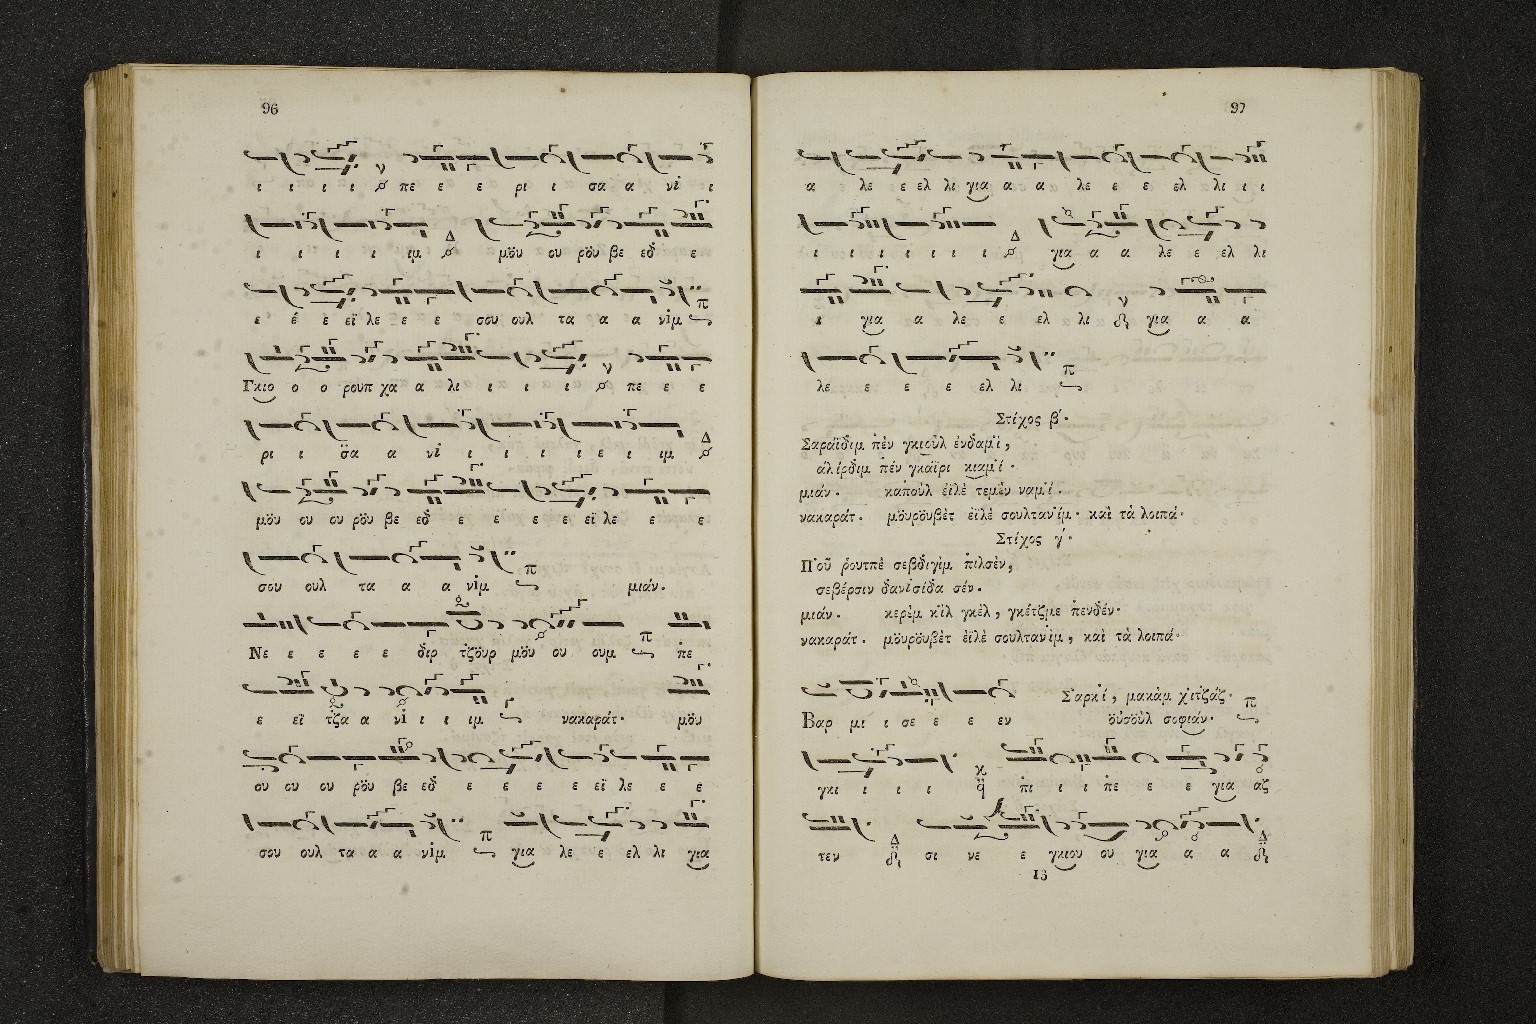 96
ι ι ι ι πε ε ε ρι ι σα α νὶ ι
ι ι ι ι ιμ Δ μȣ̈ου ου ρου βε εδ ε
ε ἐ ε εϊ λε ε ε σου ουλ τα α α νὶμ π
Γκιο ο ο ρουπ χα α λι ι ι ι πε ε ε
ρι ι σα α νὶ ι ι ι ε ι ιμ Δ
μου ου ου ρου βε εδ ε ε ε ε εϊ λε ε ε
σου ουλ τα α α νὶμ π μιάν.
Νε ε ε ε ε διρ τζουρ μου ου ουμ π πε
ε εϊ τζα α νὶ ι ι ιμ νακαράτ. μου
ου ου ου ρου βε εδ ε ε ε ε εϊ λε ε ε
σου ουλ τα α α νὶμ π για λε ε ελ λι για
97
α ε λε ε ελ λι για α α λε ε ε ελ λι ι ι
ι ι ι ι ι ι ι Δ για α α λε ε ελ λι
ι για α λε ε ελ λι για α α
λε ε ε ε ελ λι π
Στίχος β΄.
Σαραΐδιμ πὲν γκιοὺλ ἐνδαμὶ,
ἀλίρδιμ πέν γκαΐρι κιαμί.
μιάν. καποὺλ ἐϊλὲ τεμὲν ναμί.
νακαράτ. μουρουβὲτ ἐϊλὲ σουλτανὶμ. καὶ τὰ λοιπά.
Στίχος γ΄.
Ποῦ ῥουτπὲ σεβδιγὶμ πιλσὲν,
σεβέρσιν δανισίδα σέν.
μιάν. κερὲμ κὶλ γκὲλ, γκέτζμε πενδέν.
νακαράτ. μουρουβὲτ ἐϊλὲ σουλτανὶμ, καὶ τὰ λοιπά.
Σαρκὶ, μακὰμ χιτζάζ.
Βαρ μι ι σε ε ε εν οὐσοὺλ σοφιάν. π
γκι ι ι ι πι ι πε ε ε για αζ
τεν Δ σι νε ε γκιου ου για α α Δ
13